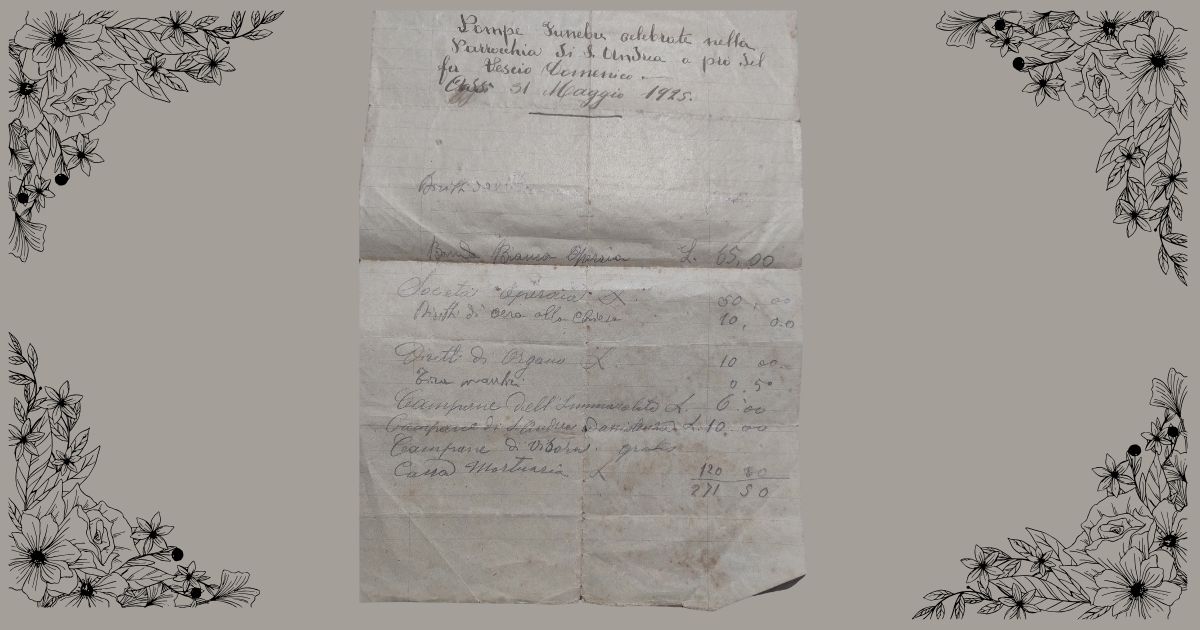 Pompe Funebri celebrate nella
Parrocchia di S. Andrea a pro del
fu Vescio Domenico.
31 Maggio 1925.
Diritti
Banda Bianca Operaia L. 65,00
Società "Operaia" L. 50, 00
Diritti di cera alla chiesa 10, 00
Diritti di Organo L. 10 00
Tira mantici 0. 50
Campane dell'Immacolata L. 6. 00
Campane di S. Andrea L. 10. 00
Campane di gratis
Cassa Mortuaria L 120 00
271 50